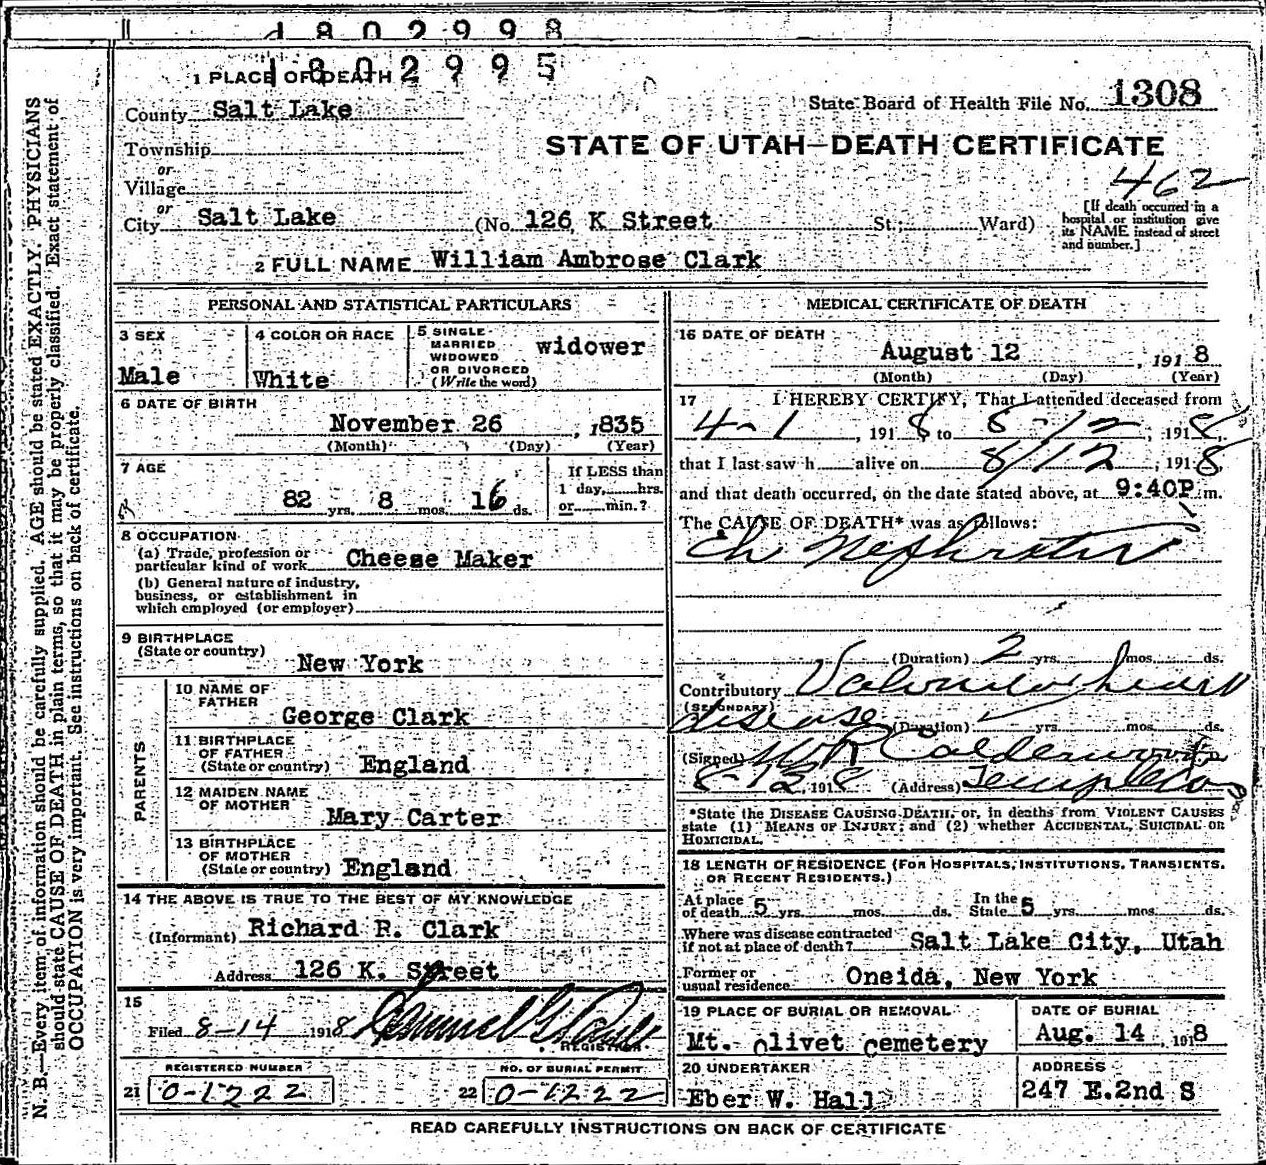 1802998
1802995
1 PLACE OF DEATH
County Salt Lake
State Board of Health File No. 1308
Township
STATE OF UTAH—DEATH CERTIFICATE
or
Village
462
or
City Salt Lake (No. 126 K Street St.; Ward)
[If death occurred in a
hospital or institution give
its NAME instead of street
and number.]
2 FULL NAME William Ambrose Clark
PERSONAL AND STATISTICAL PARTICULARS
3 SEX
Male
4 COLOR OR RACE
White
5 SINGLE
MARRIED
WIDOWED
OR DIVORCED
(Write the word)
widower
6 DATE OF BIRTH
November 26, 1835
(Month) (Day) (Year)
7 AGE
82 yrs. 8 mos. 16 ds.
If LESS than
1 day, hrs.
or min.?
8 OCCUPATION
(a) Trade, profession or
particular kind of work Cheese Maker
(b) General nature of industry,
business, or establishment in
which employed (or employer)
9 BIRTHPLACE
(State or country)
New York
PARENTS
10 NAME OF
FATHER
George Clark
11 BIRTHPLACE
OF FATHER
(State or country) England
12 MAIDEN NAME
OF MOTHER
Mary Carter
13 BIRTHPLACE
OF MOTHER
(State or country) England
14 THE ABOVE IS TRUE TO THE BEST OF MY KNOWLEDGE
(Informant) Richard R. Clark
Address 126 K. Street
15
Filed 8-14 1918
REGISTRAR
REGISTERED NUMBER
21 0-1222
NO. OF BURIAL PERMIT
22 0-1222
MEDICAL CERTIFICATE OF DEATH
16 DATE OF DEATH
August 12, 1918
(Month) (Day) (Year)
17 I HEREBY CERTIFY, That I attended deceased from
4-1, 1918 to 8-12, 1918,
that I last saw h alive on 8/12, 1918
and that death occurred, on the date stated above, at 9:40P.m.
The CAUSE OF DEATH* was as follows:
Ch Nephritis
(Duration) 2 yrs. mos. ds.
Contributory Valvular heart
(SECONDARY)
disease (Duration) yrs. mos. ds.
(Signed) Calderwood
8-12, 1918 (Address) Templeton
*State the DISEASE CAUSING DEATH, or, in deaths from VIOLENT CAUSES
state (1) MEANS OF INJURY; and (2) whether ACCIDENTAL, SUICIDAL OR
HOMICIDAL.
18 LENGTH OF RESIDENCE (FOR HOSPITALS, INSTITUTIONS, TRANSIENTS,
OR RECENT RESIDENTS.)
At place
of death 5 yrs. mos. ds.
In the
State 5 yrs. mos. ds.
Where was disease contracted
if not at place of death? Salt Lake City, Utah
Former or
usual residence Oneida, New York
19 PLACE OF BURIAL OR REMOVAL
Mt. Olivet Cemetery
DATE OF BURIAL
Aug. 14, 1918
20 UNDERTAKER
Eber W. Hall
ADDRESS
247 E.2nd S
READ CAREFULLY INSTRUCTIONS ON BACK OF CERTIFICATE
N. B.—Every item of information should be carefully supplied. AGE should be stated EXACTLY. PHYSICIANS
should state CAUSE OF DEATH in plain terms, so that it may be properly classified. Exact statement of
OCCUPATION is very important. See instructions on back of certificate.